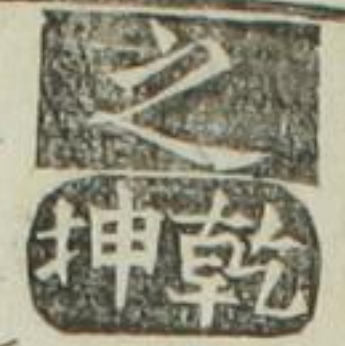 之
乾坤